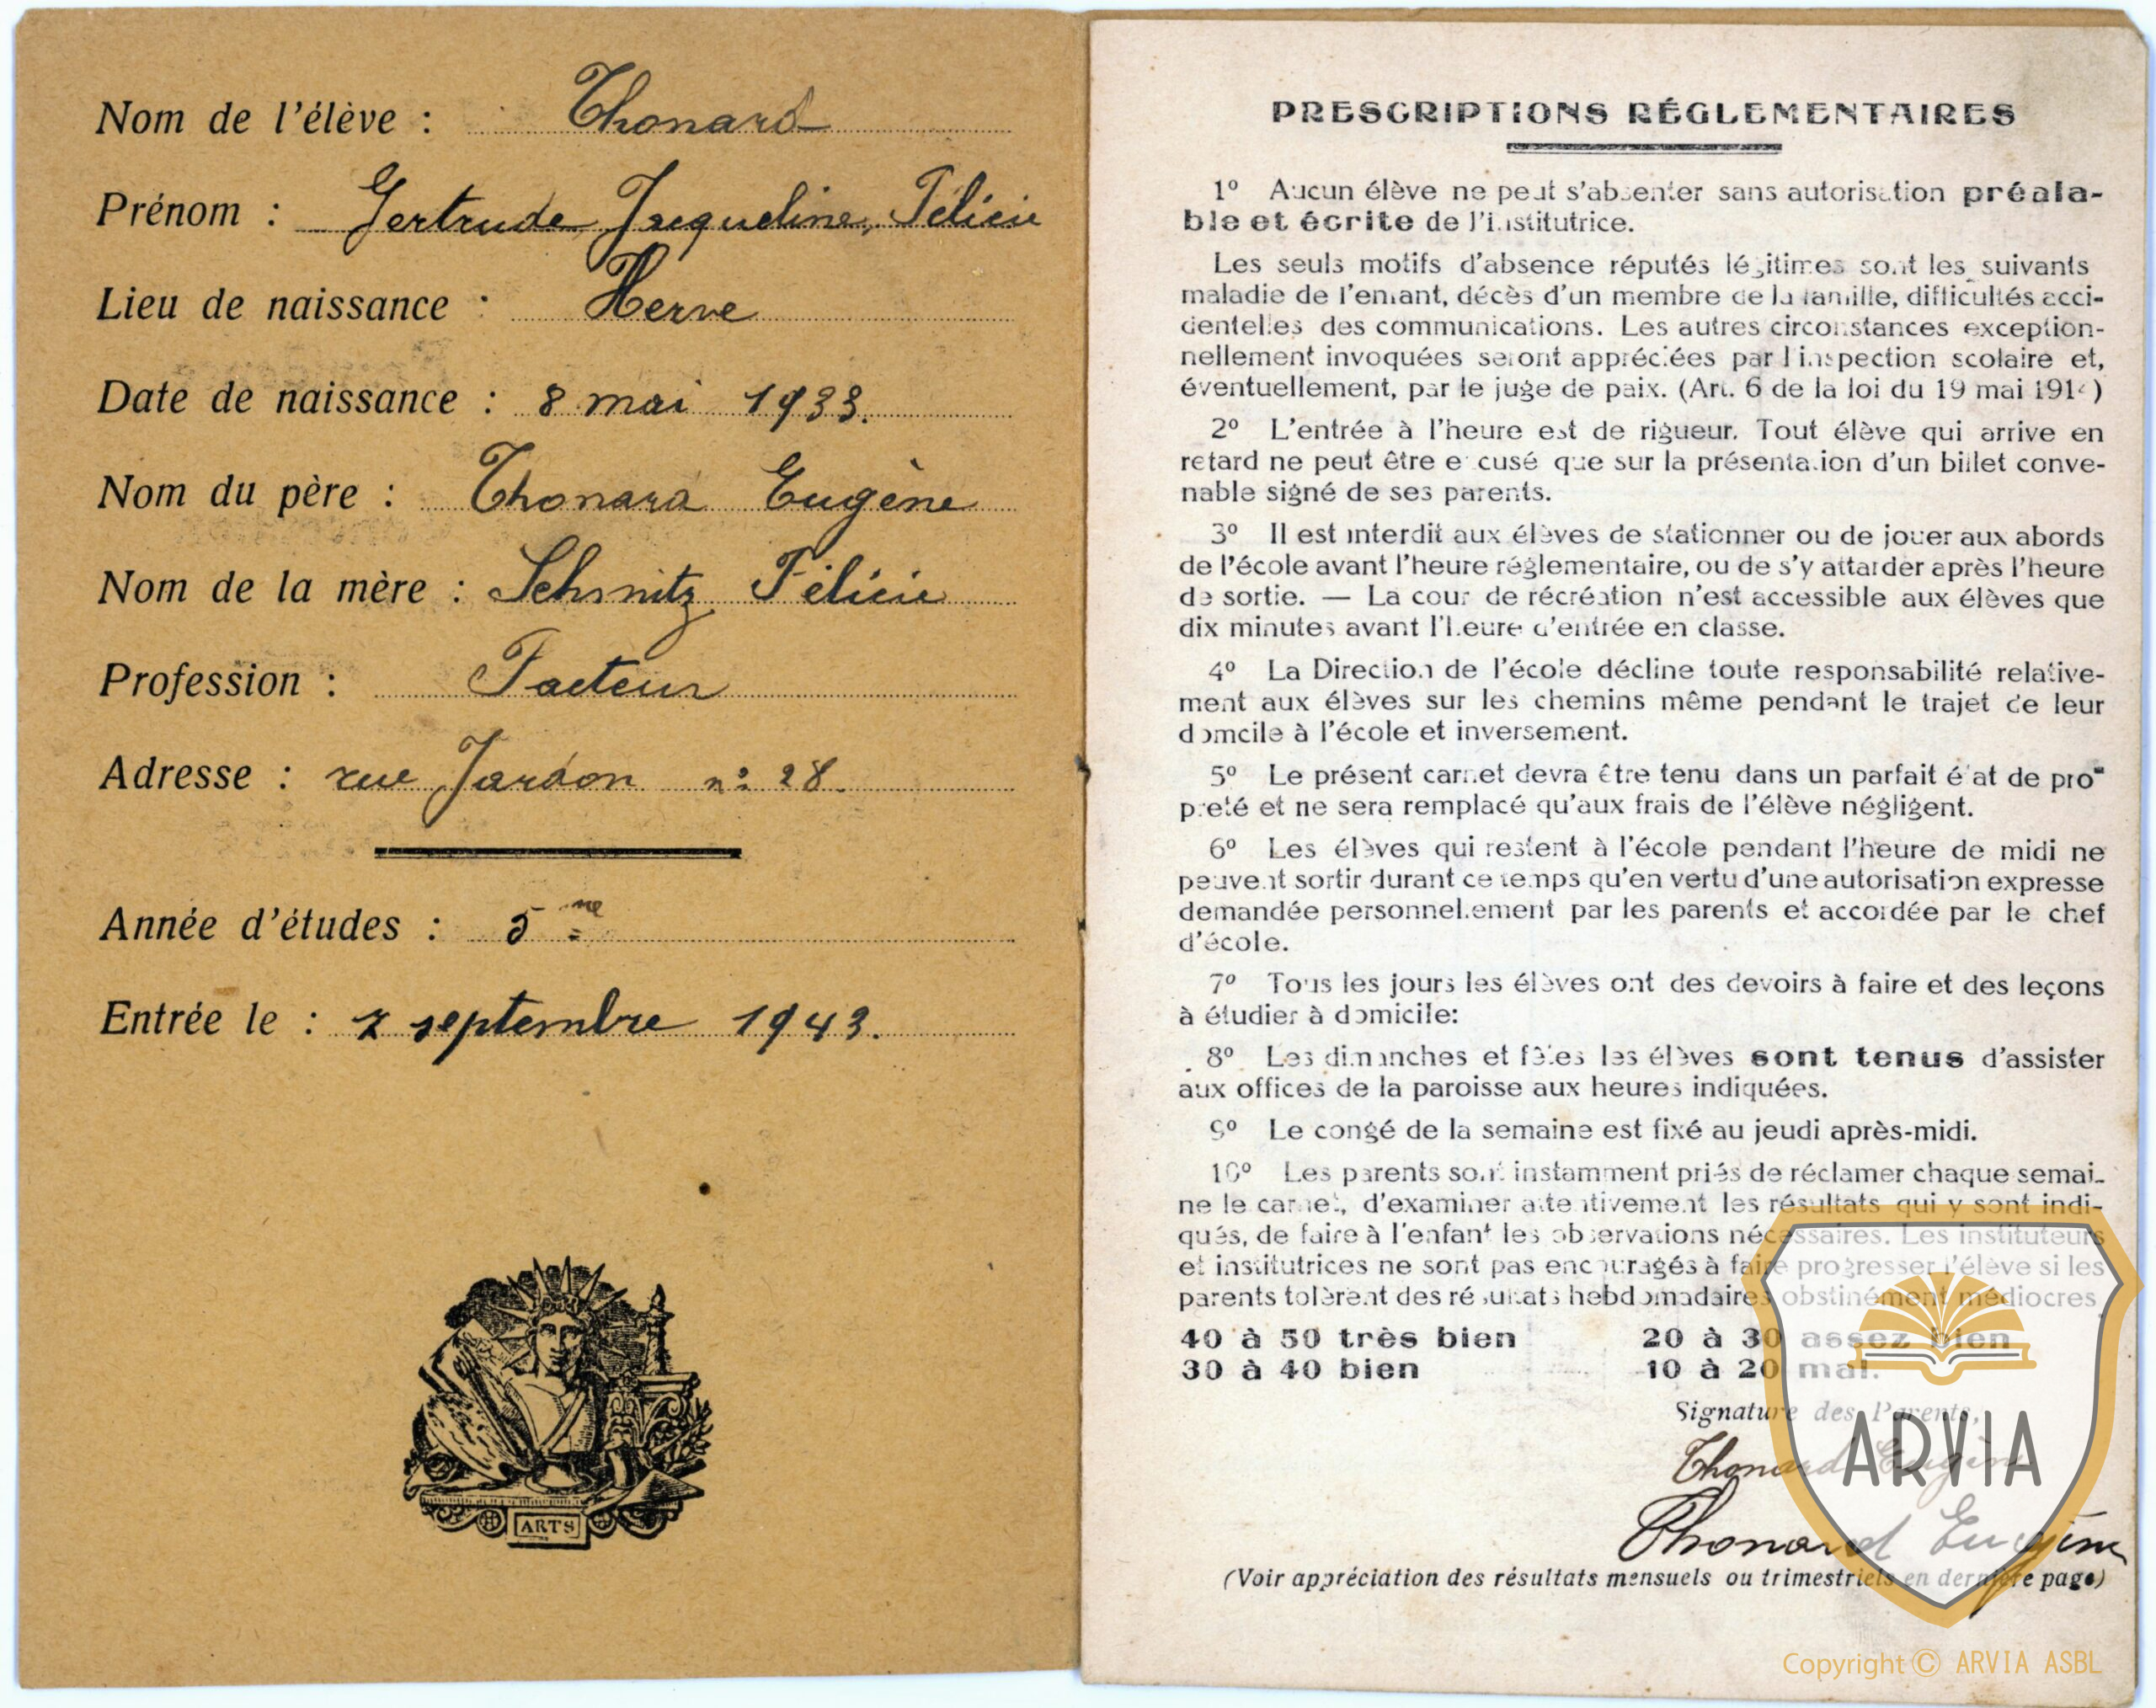 Nom de l'élève : Thonard
Prénom : Gertrude, Jacqueline, Félicie
Lieu de naissance : Herve
Date de naissance : 8 mai 1933.
Nom du père : Thonard Eugène
Nom de la mère : Schmitz Félicie
Profession : Facteur
Adresse : rue Jardon n° 28.
Année d'études : 5me
Entrée le : septembre 1943.
ARTS
PRESCRIPTIONS RÉGLEMENTAIRES
1° Aucun élève ne peut s'absenter sans autorisation préala-
ble et écrite de l'institutrice.
Les seuls motifs d'absence réputés légitimes sont les suivants
maladie de l'enfant, décès d'un membre de la famille, difficultés acci-
dentelles des communications. Les autres circonstances exception-
nellement invoquées seront appréciées par l'inspection scolaire et,
éventuellement, par le juge de paix. (Art. 6 de la loi du 19 mai 1914)
2° L'entrée à l'heure est de rigueur. Tout élève qui arrive en
retard ne peut être excusé que sur la présentation d'un billet conve-
nable signé de ses parents.
3° Il est interdit aux élèves de stationner ou de jouer aux abords
de l'école avant l'heure réglementaire, ou de s'y attarder après l'heure
de sortie. — La cour de récréation n'est accessible aux élèves que
dix minutes avant l'heure d'entrée en classe.
4° La Direction de l'école décline toute responsabilité relative-
ment aux élèves sur les chemins même pendant le trajet de leur
domcile à l'école et inversement.
5° Le présent carnet devra être tenu dans un parfait état de pro-
preté et ne sera remplacé qu'aux frais de l'élève négligent.
6° Les élèves qui restent à l'école pendant l'heure de midi ne
peuvent sortir durant ce temps qu'en vertu d'une autorisation expresse
demandée personnellement par les parents et accordée par le chef
d'école.
7° Tous les jours les élèves ont des devoirs à faire et des leçons
à étudier à domicile:
8° Les dimanches et fêtes les élèves sont tenus d'assister
aux offices de la paroisse aux heures indiquées.
9° Le congé de la semaine est fixé au jeudi après-midi.
10° Les parents sont instamment priés de réclamer chaque semai-
ne le carnet, d'examiner attentivement les résultats qui y sont indi-
qués, de faire à l'enfant les observations nécessaires. Les instituteurs
et institutrices ne sont pas encouragés à faire progresser l'élève si les
parents tolèrent des résultats hebdomadaires obstinément médiocres.
40 à 50 très bien 20 à 30 assez bien
30 à 40 bien 10 à 20 mal.
Signature des Parents,
Thonard Eugène
Thonard Eugène
(Voir appréciation des résultats mensuels ou trimestriels en dernière page)
ARVIA
Copyright © ARVIA ASBL